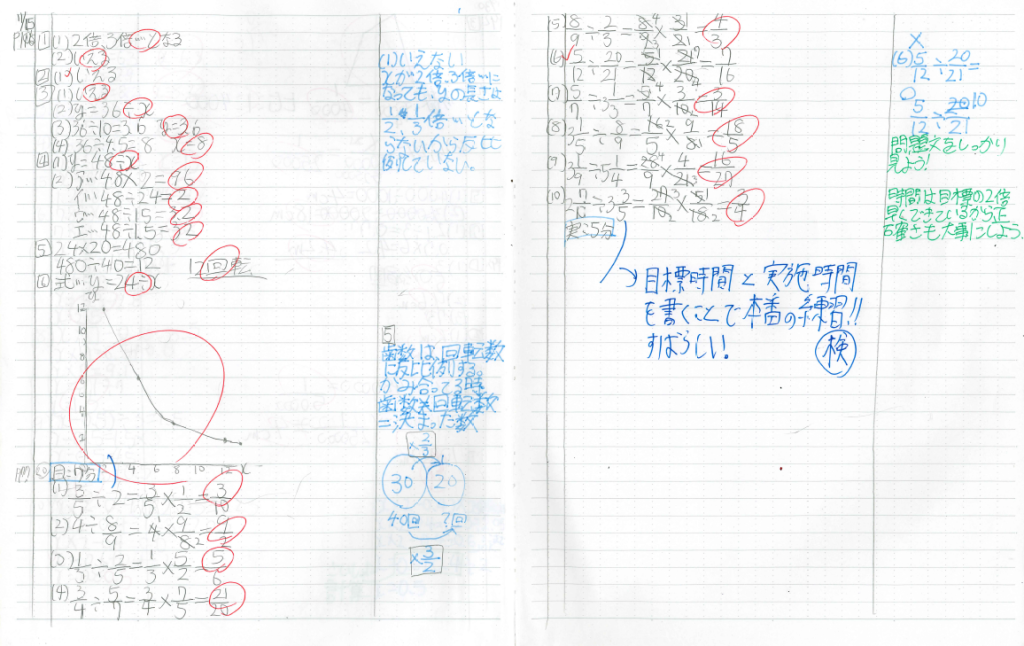 11/15
1 (1) 2倍、3倍…となる
(2) いえる
2 (1) いえる
3 (1) いえる
(2) y=36÷x
(3) 36÷10=3.6 y=3.6
(4) 36÷4.5=8 x=8
4 (1) y=48÷x
(2) ア…48×2=96
イ…48÷24=2
ウ…48÷15=3.2
5 24×20=480
480÷40=12 12回転
6 式…y=24÷x
y
12
10
8
6
4
2
4 6 8 10 12 x
(1)いえない
xが2倍、3倍…に
なっても、yの長さは
1/2、1/3倍…とな
らないから反比
例していない。
5
歯数は、回転数
に反比例する。
かみ合ってる時
歯数×回転数
=決まった数
×2/3
30 20
40回 ?回
×3/2
目:7分
(1) 3/5÷2=3/5×1/2=3/10
(2) 4÷8/9=4×9/8=9/2
(3) 1/3÷2/5=1/3×5/2=5/6
(4) 3/4÷5/7=3/4×7/5=21/20
(5) 8/9÷2/3=8/9×3/2=4/3
(6) 5/12÷20/21=5/12×21/20=7/16
(8) 3 1/5÷8/9=16/5×9/8=18/5
(9) 3 1/9÷5 1/4=28/9×4/21=16/27
(10) 2 7/10÷3 3/5=27/10×5/18=3/4
実:5分
×
(6) 5/12÷20/21=
○
5/12÷20/21 10
問題文をしっかり
見よう!
時間は目標の2倍
早くできているから正
確さも大事にしよう。
目標時間と実施時間
を書くことで本番の練習!!
すばらしい!
検